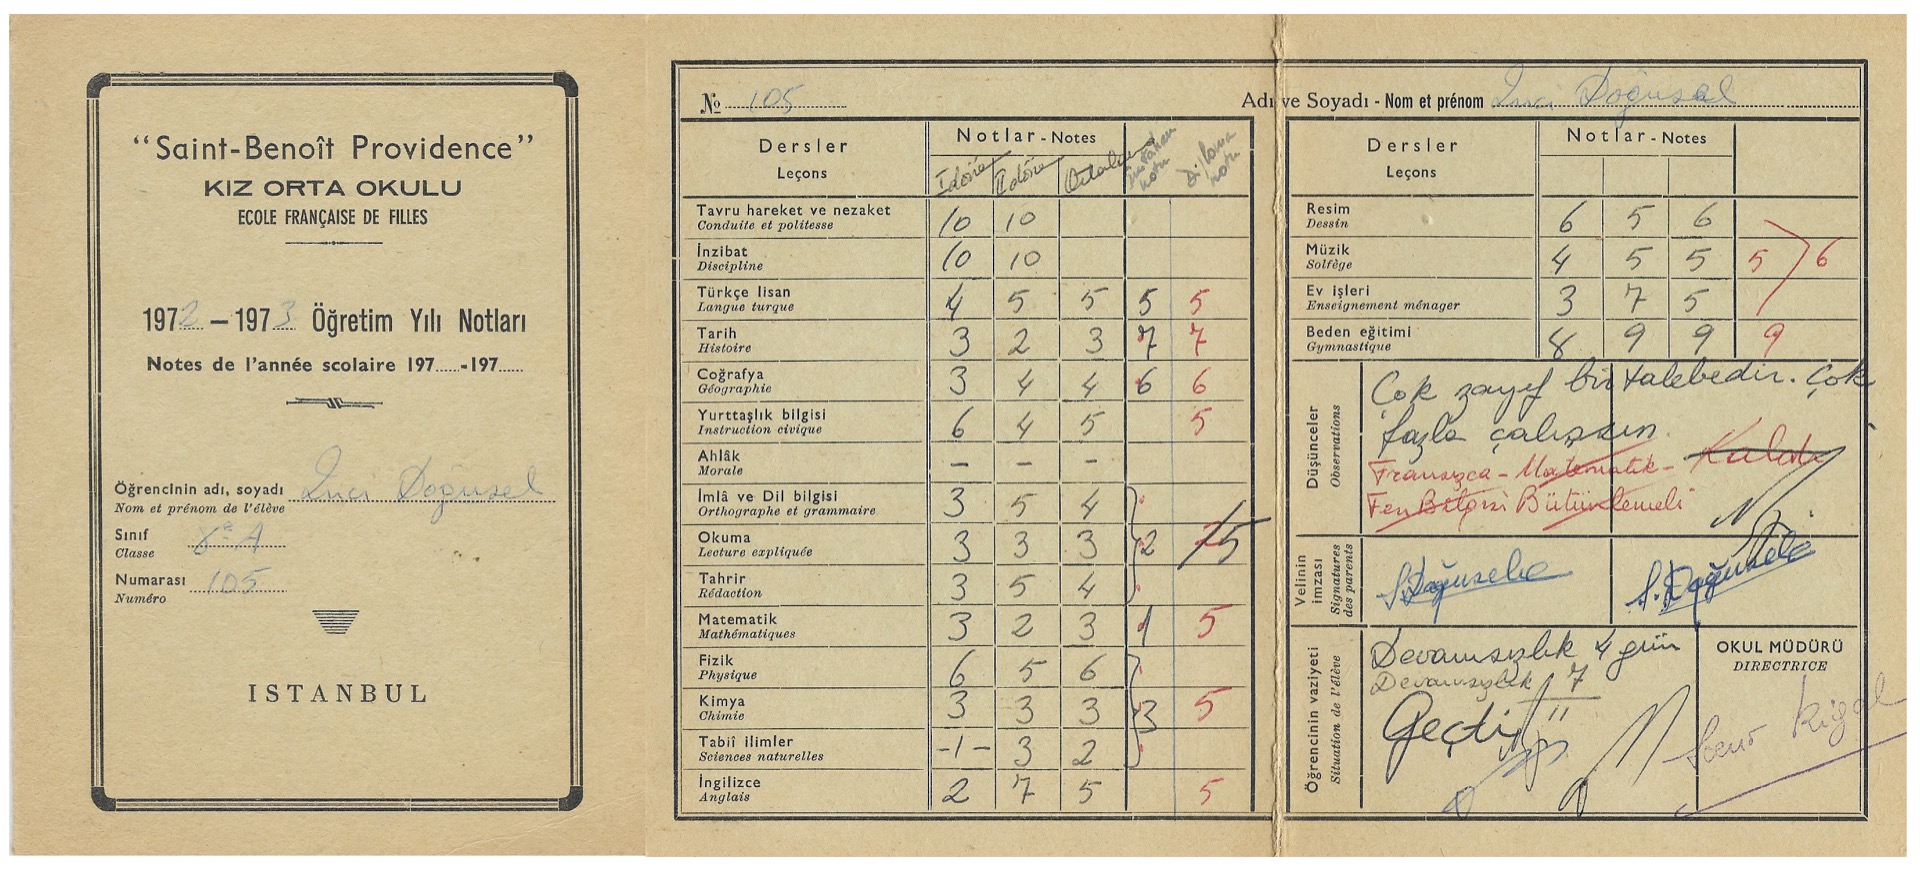 "Saint-Benoît Providence"
KIZ ORTA OKULU
ECOLE FRANÇAISE DE FILLES
1972 – 1973 Öğretim Yılı Notları
Notes de l'année scolaire 197.....-197.....
Öğrencinin adı, soyadı İnci Doğusel
Nom et prénom de l'élève
Sınıf
Classe
Numarası 105
Numéro
ISTANBUL
No 105
Dersler Notlar - Notes
Leçons I döne II döne Ortalama imtahan notu Diploma notu
Tavru hareket ve nezaket 10 10
Conduite et politesse
İnzibat 10 10
Discipline
Türkçe lisan 4 5 5 5 5
Langue turque
Tarih 3 2 3 7 7
Histoire
Coğrafya 3 4 4 6 6
Géographie
Yurttaşlık bilgisi 6 4 5 5
Instruction civique
Ahlâk – – –
Morale
İmlâ ve Dil bilgisi 3 5 4
Orthographe et grammaire
Okuma 3 3 3 2 5
Lecture expliquée
Tahrir 3 5 4
Rédaction
Matematik 3 2 3 1 5
Mathématiques
Fizik 6 5 6
Physique
Kimya 3 3 3 3 5
Chimie
Tabiî ilimler -1- 3 2
Sciences naturelles
İngilizce 2 7 5 5
Anglais
Adı ve Soyadı - Nom et prénom İnci Doğusel
Dersler Notlar - Notes
Leçons
Resim 6 5 6
Dessin
Müzik 4 5 5 5 6
Solfège
Ev işleri 3 7 5
Enseignement ménager
Beden eğitimi 8 9 9 9
Gymnastique
Düşünceler
Observations
Çok zayıf bir talebedir. Çok
fazla çalışsın.
Fransızca - Matematik - Kaldı
Fen Bilgisi Bütünlemeli
Velinin imzası
Signatures des parents
S. Doğusel
Öğrencinin vaziyeti
Situation de l'élève
Devamsızlık 4 gün
Devamsızlık 7
11
Geçti
OKUL MÜDÜRÜ
DIRECTRICE